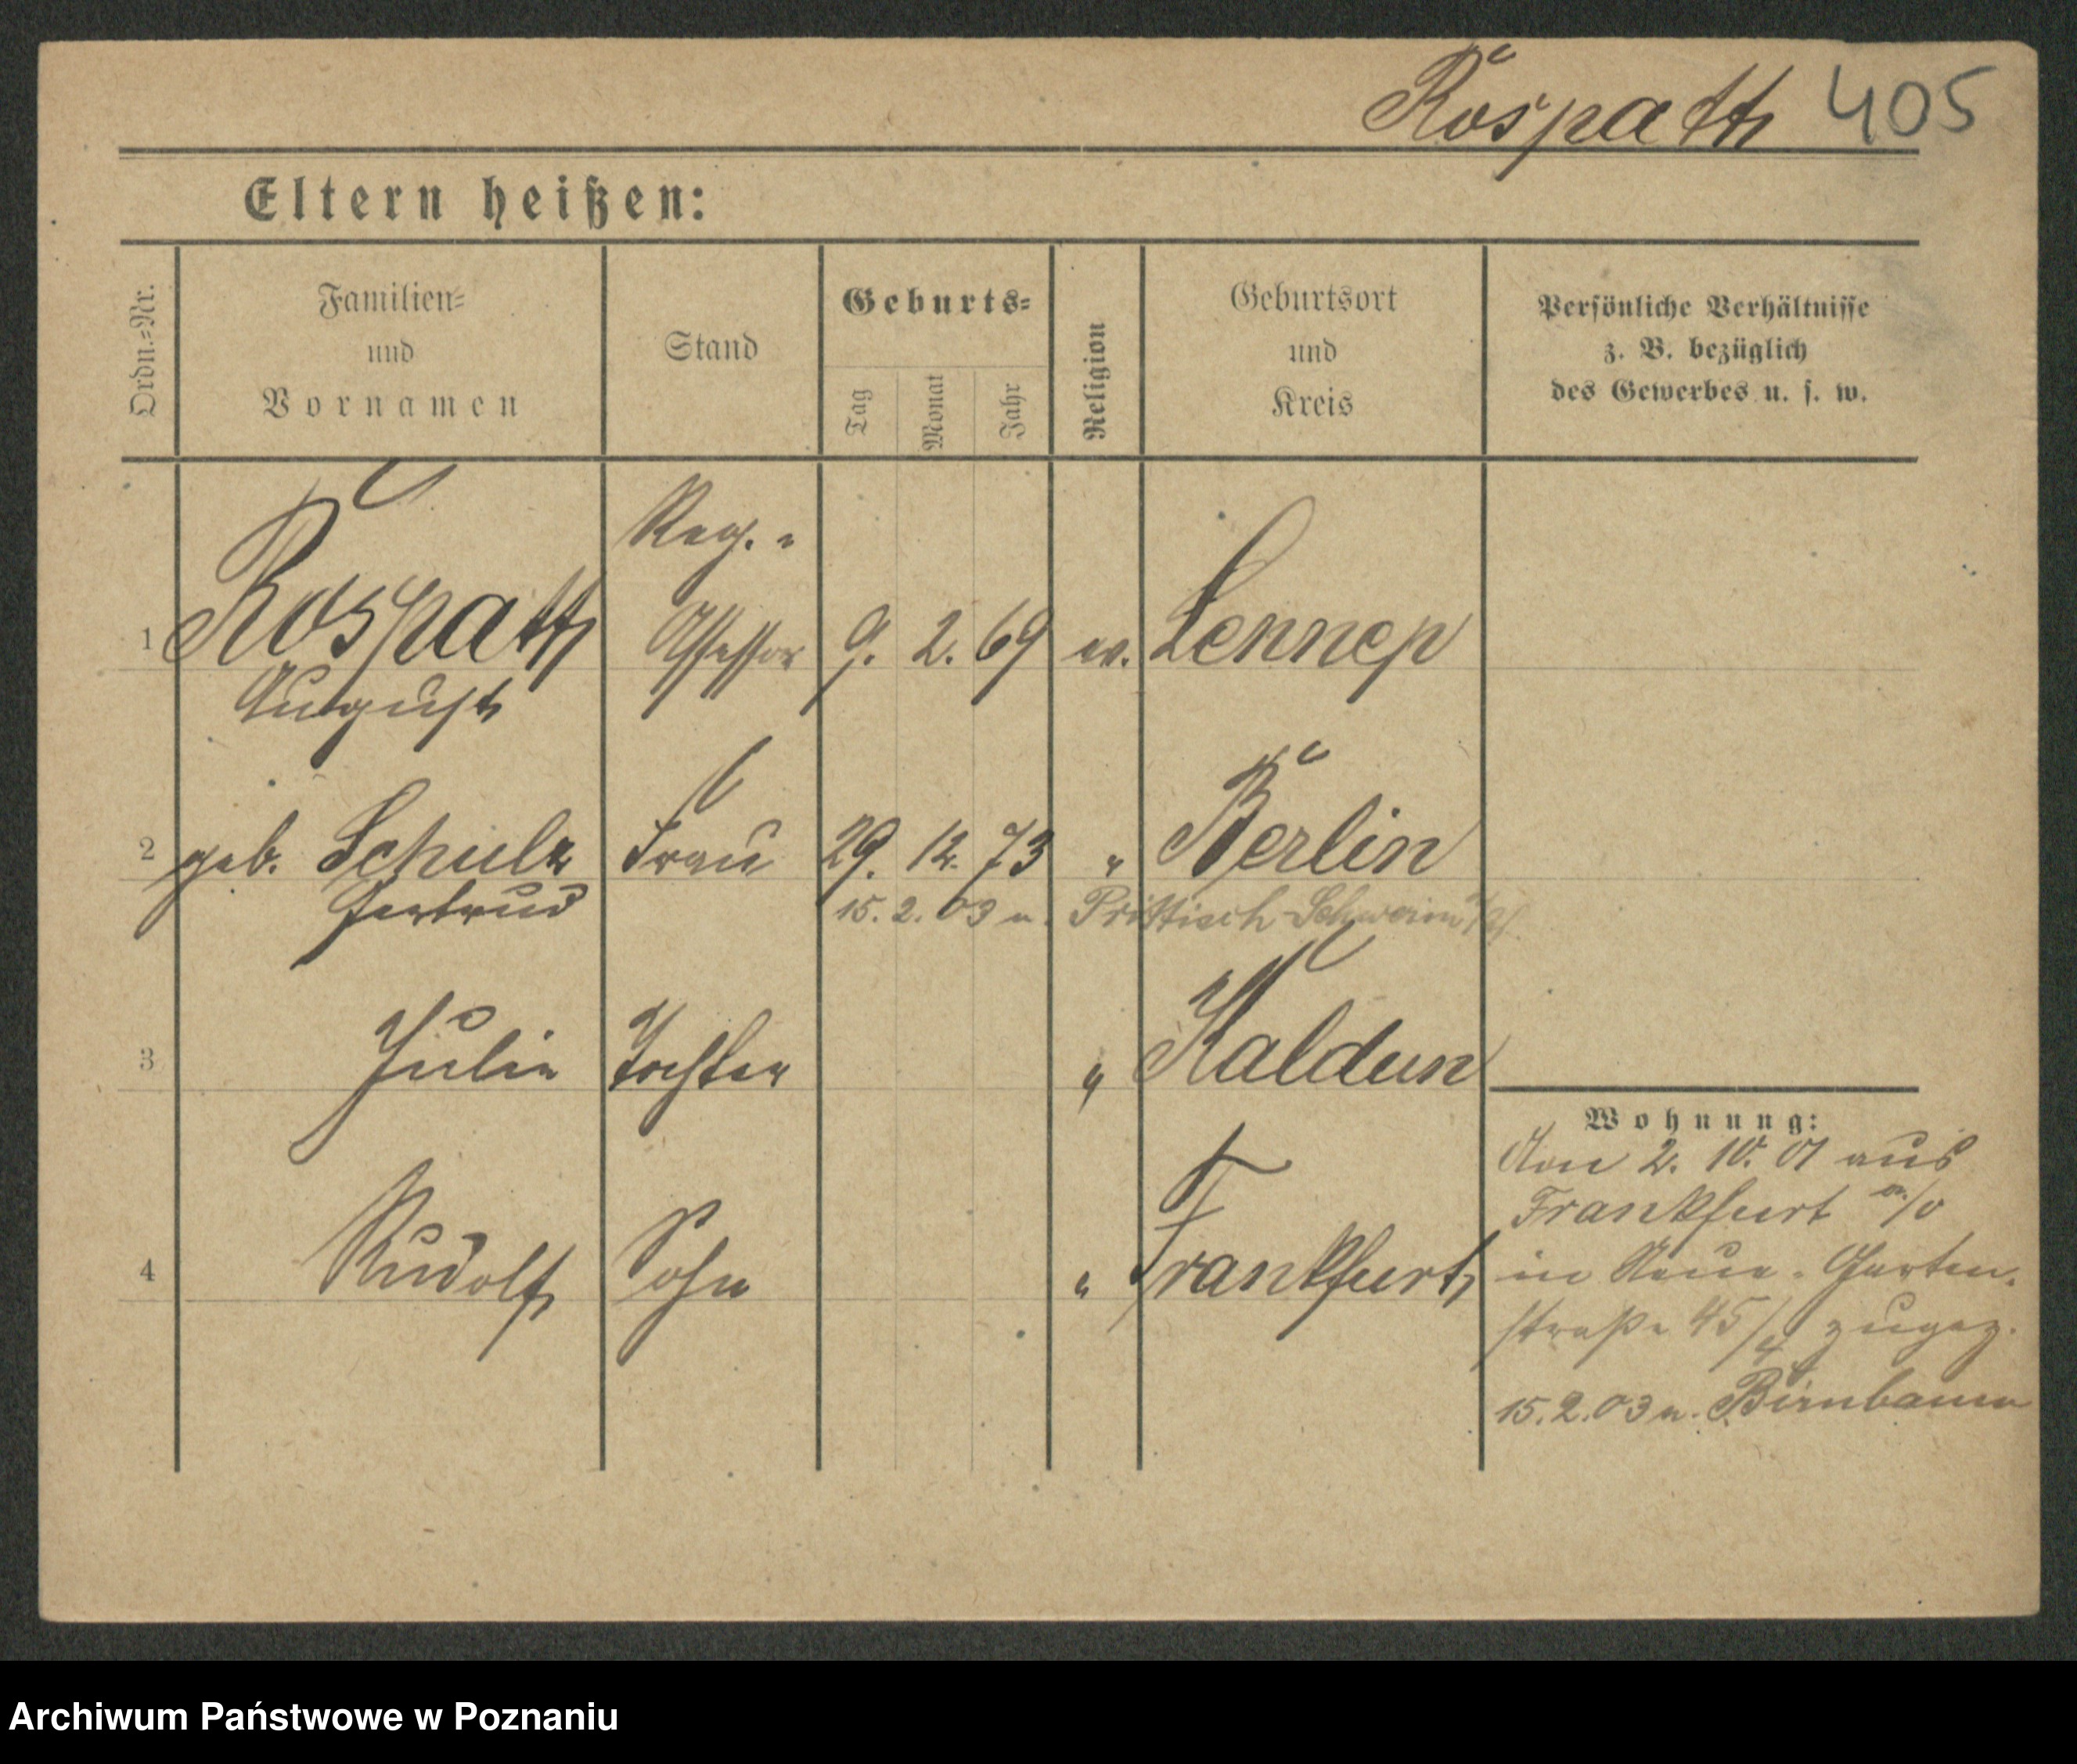 Rospatt 405
Eltern heißen:
Ordn.=Nr.
Familien=
und
Vornamen
Stand
Geburts=
Tag
Monat
Jahr
Religion
Geburtsort
und
Kreis
Persönliche Verhältnisse
z. B. bezüglich
des Gewerbes u. s. w.
Reg.-
1 Rospatt Assessor 9. 2. 69 ev. Lennep
August
2 geb. Schulz Frau 29. 12. 73 " Berlin
Gertrud 15. 2. 03 n. Prittisch Schwerin
3 Julie Tochter " Kaldun
Wohnung:
4 Rudolf Sohn " Frankfurt
Am 2. 10. 01 aus
Frankfurt a./O
in Neue-Garten-
straße 45/ zugez.
15.2.03 n. Birnbaum
Archiwum Państwowe w Poznaniu